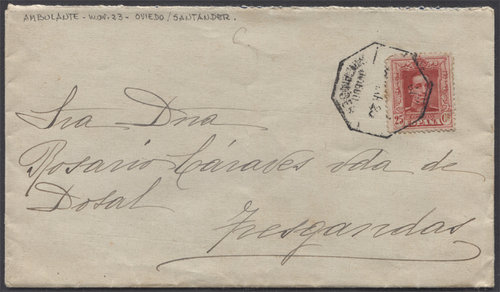 AMBULANTE - NOV. 23 - OVIEDO / SANTANDER.
25 Cs
ESPAÑA
Sra Dna
Rosario Cáraves vda de
Dosal
Tresgandas